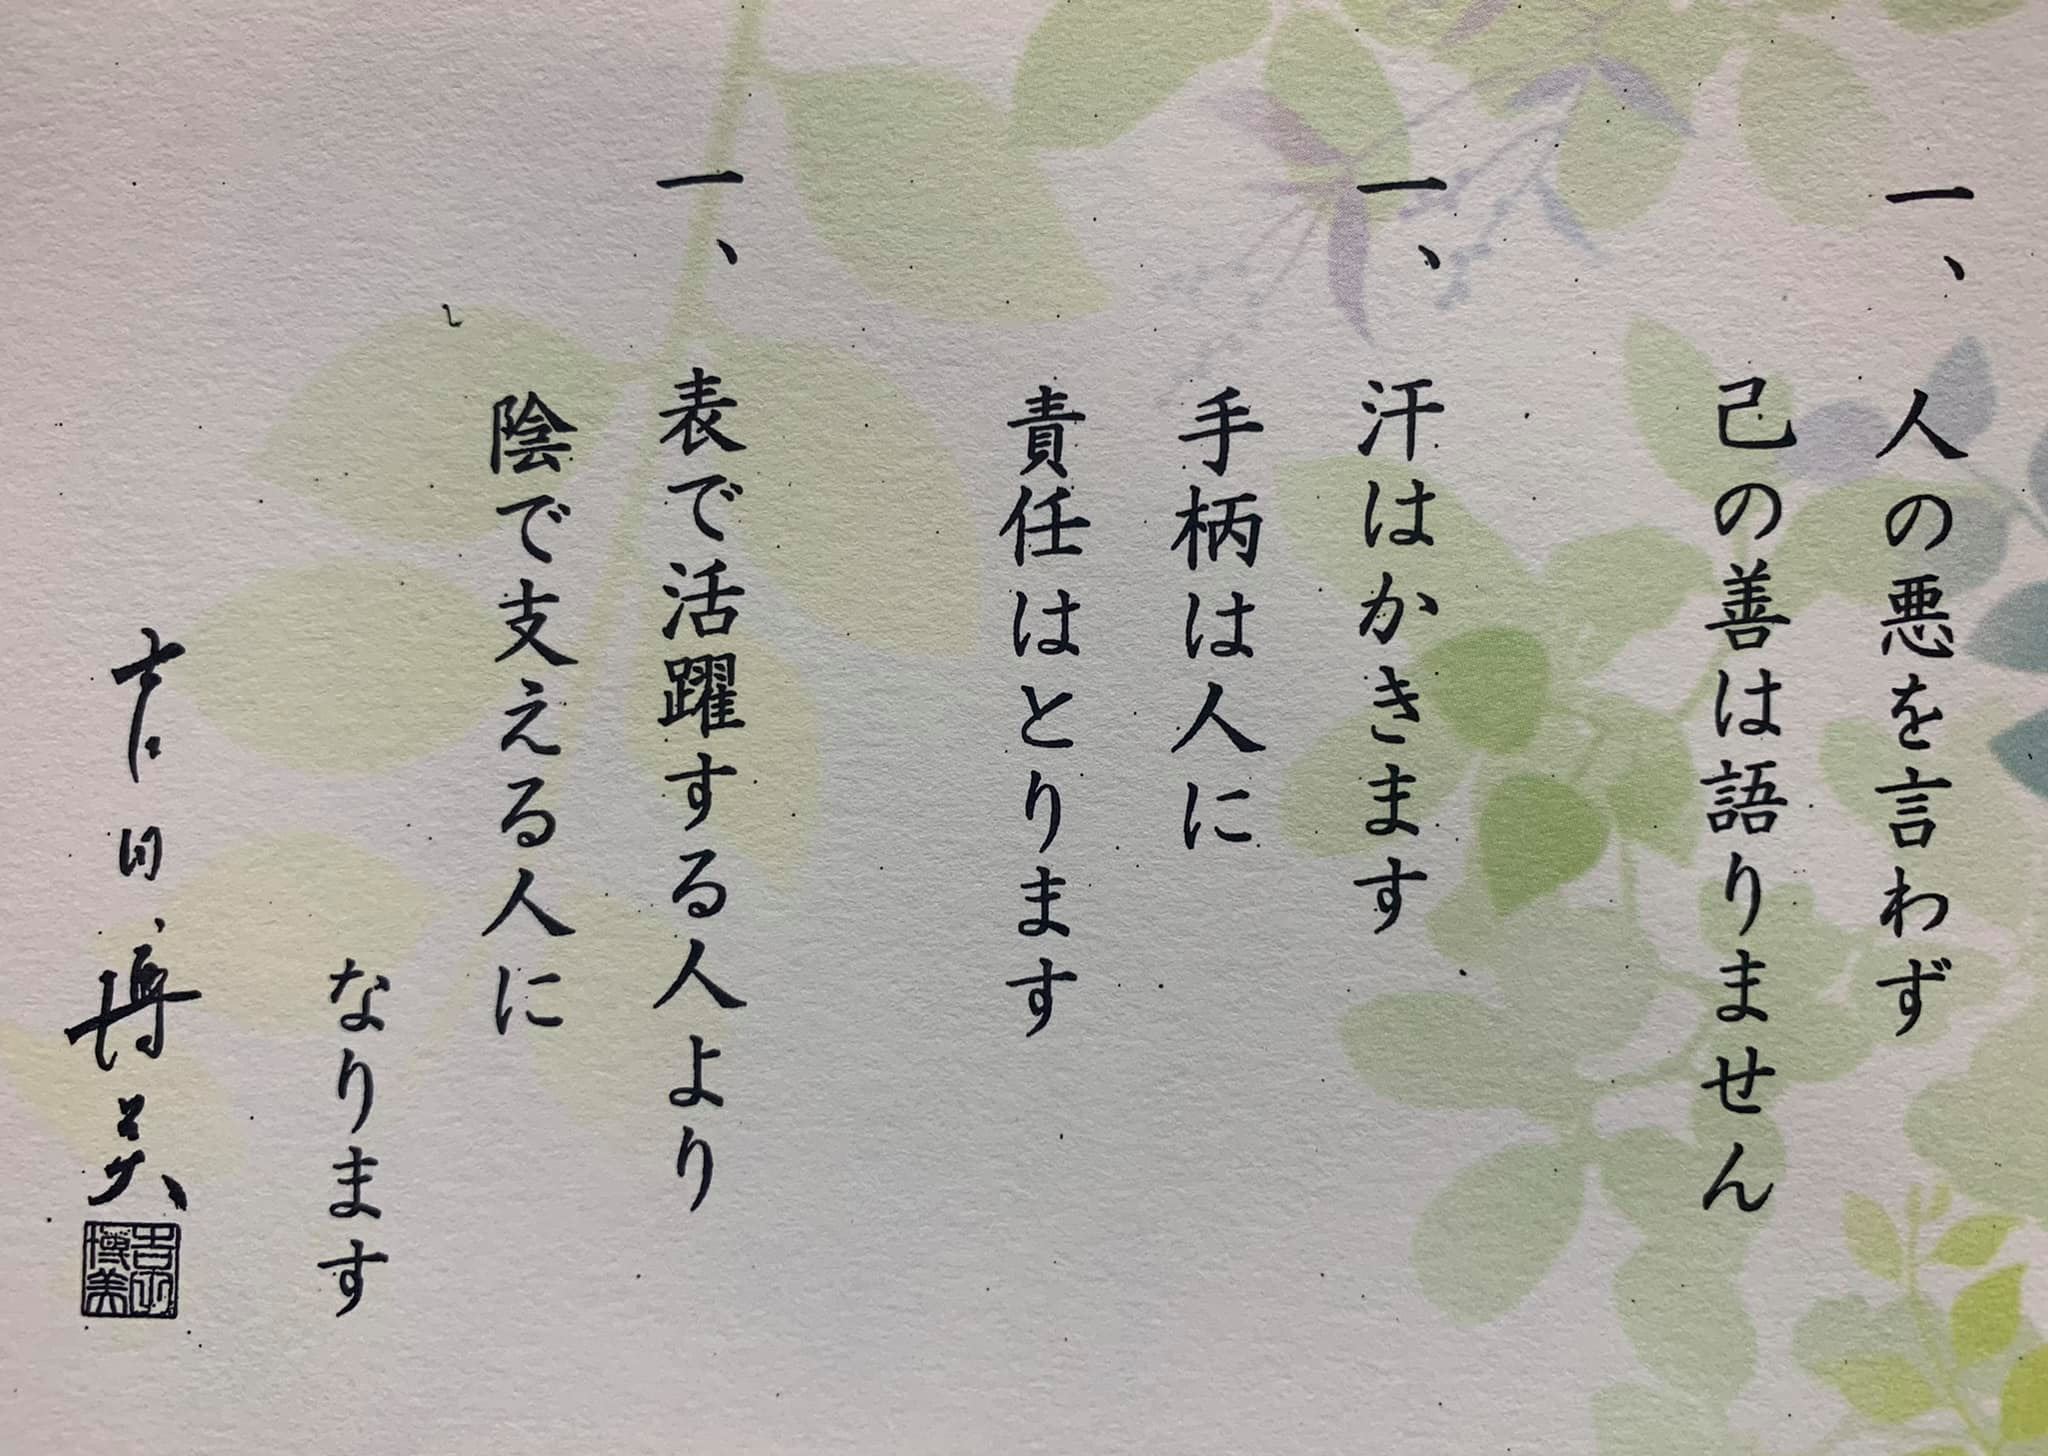 一、人の悪を言わず
己の善は語りません
一、汗はかきます
手柄は人に
責任はとります
一、表で活躍する人より
陰で支える人に
なります